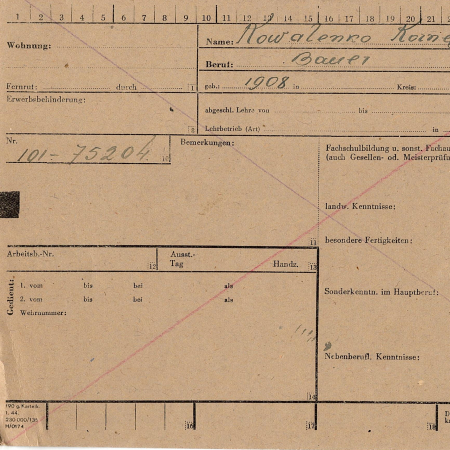 1 2 3 4 5 6 7 8 9 10 11 12 13 14 15 16 17 18 19 20 21
Wohnung:
Name: Kowalenko
Beruf: Bauer
Fernruf: durch 1
geb.: 1908 in Kreis:
Erwerbsbehinderung:
8
abgeschl. Lehre von bis
Lehrbetrieb (Art) in
Nr. 101-75204 10
Bemerkungen:
11
Fachschulbildung u. sonst. Fachau
(auch Gesellen- od. Meisterprüfu
landw. Kenntnisse:
besondere Fertigkeiten:
Sonderkenntn. im Hauptberuf:
Nebenberufl. Kenntnisse:
Arbeitsb.-Nr. 12
Ausst.-
Tag Handz. 13
Gedient:
1. vom bis bei als
2. vom bis bei als
Wehrnummer:
14
190 g Karteik.
1. 44.
16 17 18